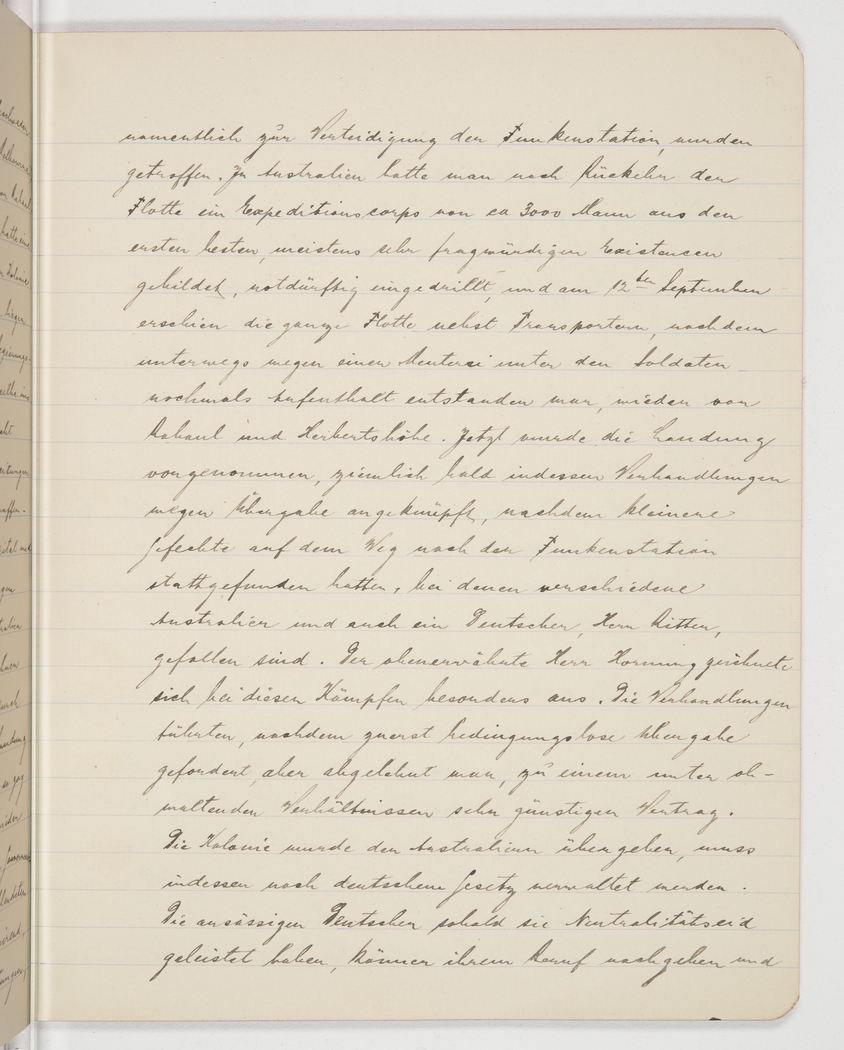 namentlich zur Verteidigung der Funkenstation, wurden
getroffen. In Australien hatte man nach Rückkehr der
Flotte ein Expeditionscorps von ca 3000 Mann aus den
ersten besten, meistens sehr fragwürdigen Existensen
gebildet, notdürftig eingedrillt, und am 12ten September
erschien die ganze Flotte nebst Transportern, nachdem
unterwegs wegen einer Meuterei unter den Soldaten
nochmals Aufenthalt entstanden war, wieder vor
Rabaul und Herbertshöhe. Jetzt wurde die Landung
vorgenommen, ziemlich bald indessen Verhandlungen
wegen Übergabe angeknüpft, nachdem kleinere
Gefechte auf dem Weg nach der Funkenstation
stattgefunden hatten, bei denen verschiedene
Australier und auch ein Deutscher, Herr Ritter,
gefallen sind. Der obenerwähnte Herr Hornung zeichnete
sich bei diesen Kämpfen besonders aus. Die Verhandlungen
führten, nachdem zuerst bedingungslose Übergabe
gefordert, aber abgelehnt war, zu einem unter ob-
waltenden Verhältnissen sehr günstigen Vertrag.
Die Kolonie wurde den Australiern übergeben, muss
indessen nach deutschem Gesetz verwaltet werden.
Die ansässigen Deutschen sobald sie Neutralitätseid
geleistet haben, können ihrem Beruf nachgehen und